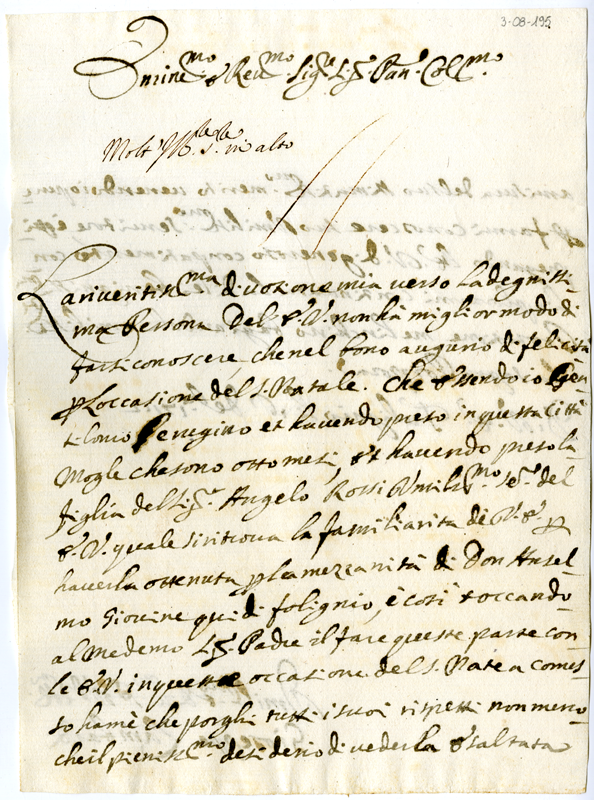 3-08-195
Emine.mo e Reu.mo Sig.re Sig.r Pan.e Coll.mo
Molt' Ill.re S.re in alto
La riveritiss.ma divozione mia verso la degnissi-
ma Persona Del E.V. non ha miglior modo di
farsi conoscere, che nel bono augurio di felicità
p l'occasione del S. Natale. Che essendo io Gen
t. homo Perugino et havendo preso in questa Città
Mogle che sono otto mesi, et havendo preso la
figlia del Sig.r Angelo Rossi Umiliss.mo Se.re del
E.V. quale si ritrova la familiarità di V.E. p
haverla ottenuta p la mezzanità di Don Ansel-
mo Giovine qui di folignio, è così toccando
al Medemo Sig.r Padre il fare queste parte con
le E.V. in questa occasione del S. Natea comes
so hamè che porghi tutti i suoi rispetti non meno
che il pieniss.mo desiderio di vederla esaltata